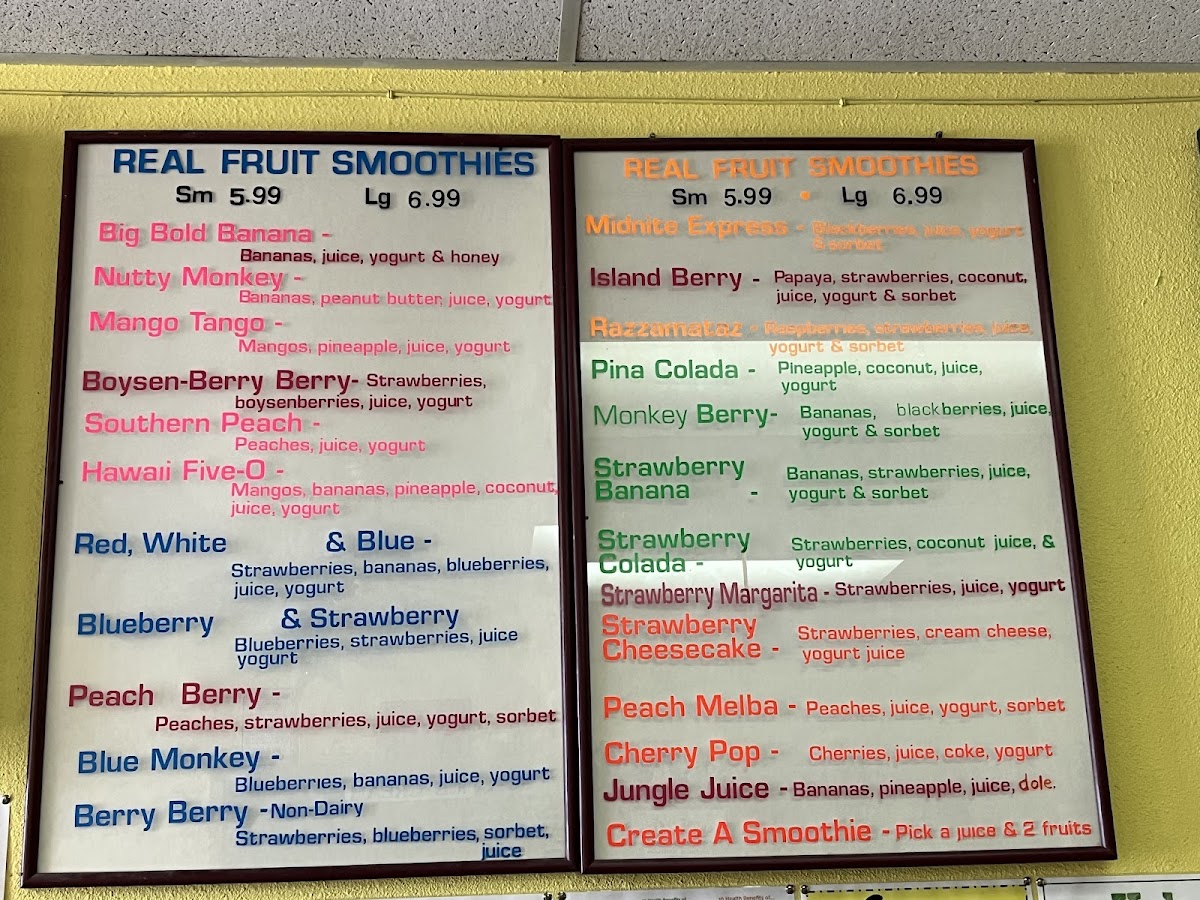 REAL FRUIT SMOOTHIES
Sm 5.99 Lg 6.99
Big Bold Banana -
Bananas, juice, yogurt & honey
Nutty Monkey -
Bananas, peanut butter, juice, yogurt
Mango Tango -
Mangos, pineapple, juice, yogurt
Boysen-Berry Berry- Strawberries,
boysenberries, juice, yogurt
Southern Peach -
Peaches, juice, yogurt
Hawaii Five-O -
Mangos, bananas, pineapple, coconut,
juice, yogurt
Red, White & Blue -
Strawberries, bananas, blueberries,
juice, yogurt
Blueberry & Strawberry
Blueberries, strawberries, juice
yogurt
Peach Berry -
Peaches, strawberries, juice, yogurt, sorbet
Blue Monkey -
Blueberries, bananas, juice, yogurt
Berry Berry -Non-Dairy
Strawberries, blueberries, sorbet,
juice
REAL FRUIT SMOOTHIES
Sm 5.99 • Lg 6.99
Midnite Express - Blackberries, juice, yogurt
& sorbet
Island Berry - Papaya, strawberries, coconut,
juice, yogurt & sorbet
Razzamataz - Raspberries, strawberries, juice,
yogurt & sorbet
Pina Colada - PIneapple, coconut, juice,
yogurt
Monkey Berry- Bananas, blackberries, juice,
yogurt & sorbet
Strawberry
Banana - Bananas, strawberries, juice,
yogurt & sorbet
Strawberry
Colada - Strawberries, coconut juice, &
yogurt
Strawberry Margarita - Strawberries, juice, yogurt
Strawberry
Cheesecake - Strawberries, cream cheese,
yogurt juice
Peach Melba - Peaches, juice, yogurt, sorbet
Cherry Pop - Cherries, juice, coke, yogurt
Jungle Juice - Bananas, pineapple, juice, dole.
Create A Smoothie - Pick a juice & 2 fruits